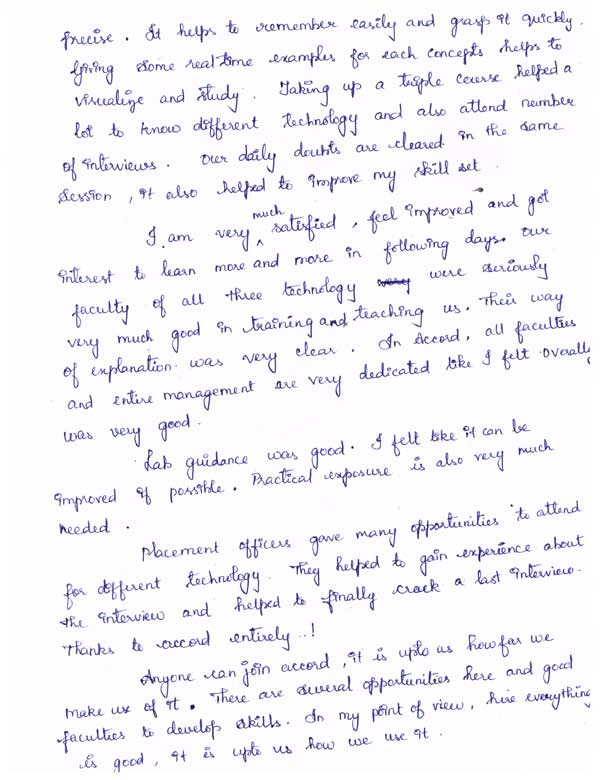 precise. It helps to remember easily and grasp it quickly.
Giving some real time examples for each concepts helps to
visualize and study. Taking up a triple course helped a
lot to know different technology and also attend number
of interviews. Our daily doubts are cleared in the same
session, it also helped to improve my skill set.
I am very much satisfied, feel improved and got
interest to learn more and more in following days. Our
faculty of all three technology were seriously
very much good in training and teaching us. Their way
of explanation was very clear. In Accord, all faculties
and entire management are very dedicated like I felt overally
was very good.
Lab guidance was good. I felt like it can be
improved if possible. Practical exposure is also very much
needed.
Placement officers gave many opportunities to attend
for different technology. They helped to gain experience about
the interview and helped to finally crack a last interview.
Thanks to accord entirely..!
Anyone can join accord, it is upto us how far we
make use of it. There are several opportunities here and good
faculties to develop skills. In my point of view, here everything
is good, it is upto us how we use it.